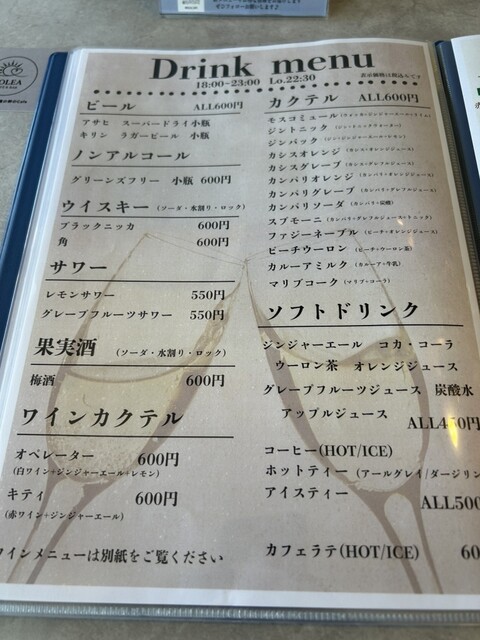 OLEA
Drink menu
18:00-23:00 Lo.22:30
表示価格は税込みです
ビール ALL600円
アサヒ スーパードライ小瓶
キリン ラガービール 小瓶
ノンアルコール
グリーンズフリー 小瓶 600円
ウイスキー (ソーダ・水割り・ロック)
ブラックニッカ 600円
角 600円
サワー
レモンサワー 550円
グレープフルーツサワー 550円
果実酒 (ソーダ・水割り・ロック)
梅酒 600円
ワインカクテル
オペレーター 600円
(白ワイン+ジンジャーエール+レモン)
キティ 600円
(赤ワイン+ジンジャーエール)
ワインメニューは別紙をご覧ください
カクテル ALL600円
モスコミュール
ジントニック
ジンバック
カシスオレンジ
カシスグレープ
カンパリオレンジ (カンパリ+オレンジジュース)
カンパリグレープ (カンパリ+グレフルジュース)
カンパリソーダ (カンパリ+炭酸)
スプモーニ (カンパリ+グレフルジュース+トニック)
ファジーネーブル (ピーチ+オレンジジュース)
ピーチウーロン (ピーチ+ウーロン茶)
カルーアミルク (カルーア+牛乳)
マリブコーク (マリブ+コーラ)
ソフトドリンク
ジンジャーエール コカ・コーラ
ウーロン茶 オレンジジュース
グレープフルーツジュース 炭酸水
アップルジュース
ALL450円
コーヒー(HOT/ICE)
ホットティー (アールグレイ/ダージリン
アイスティー
ALL500
カフェラテ(HOT/ICE) 60